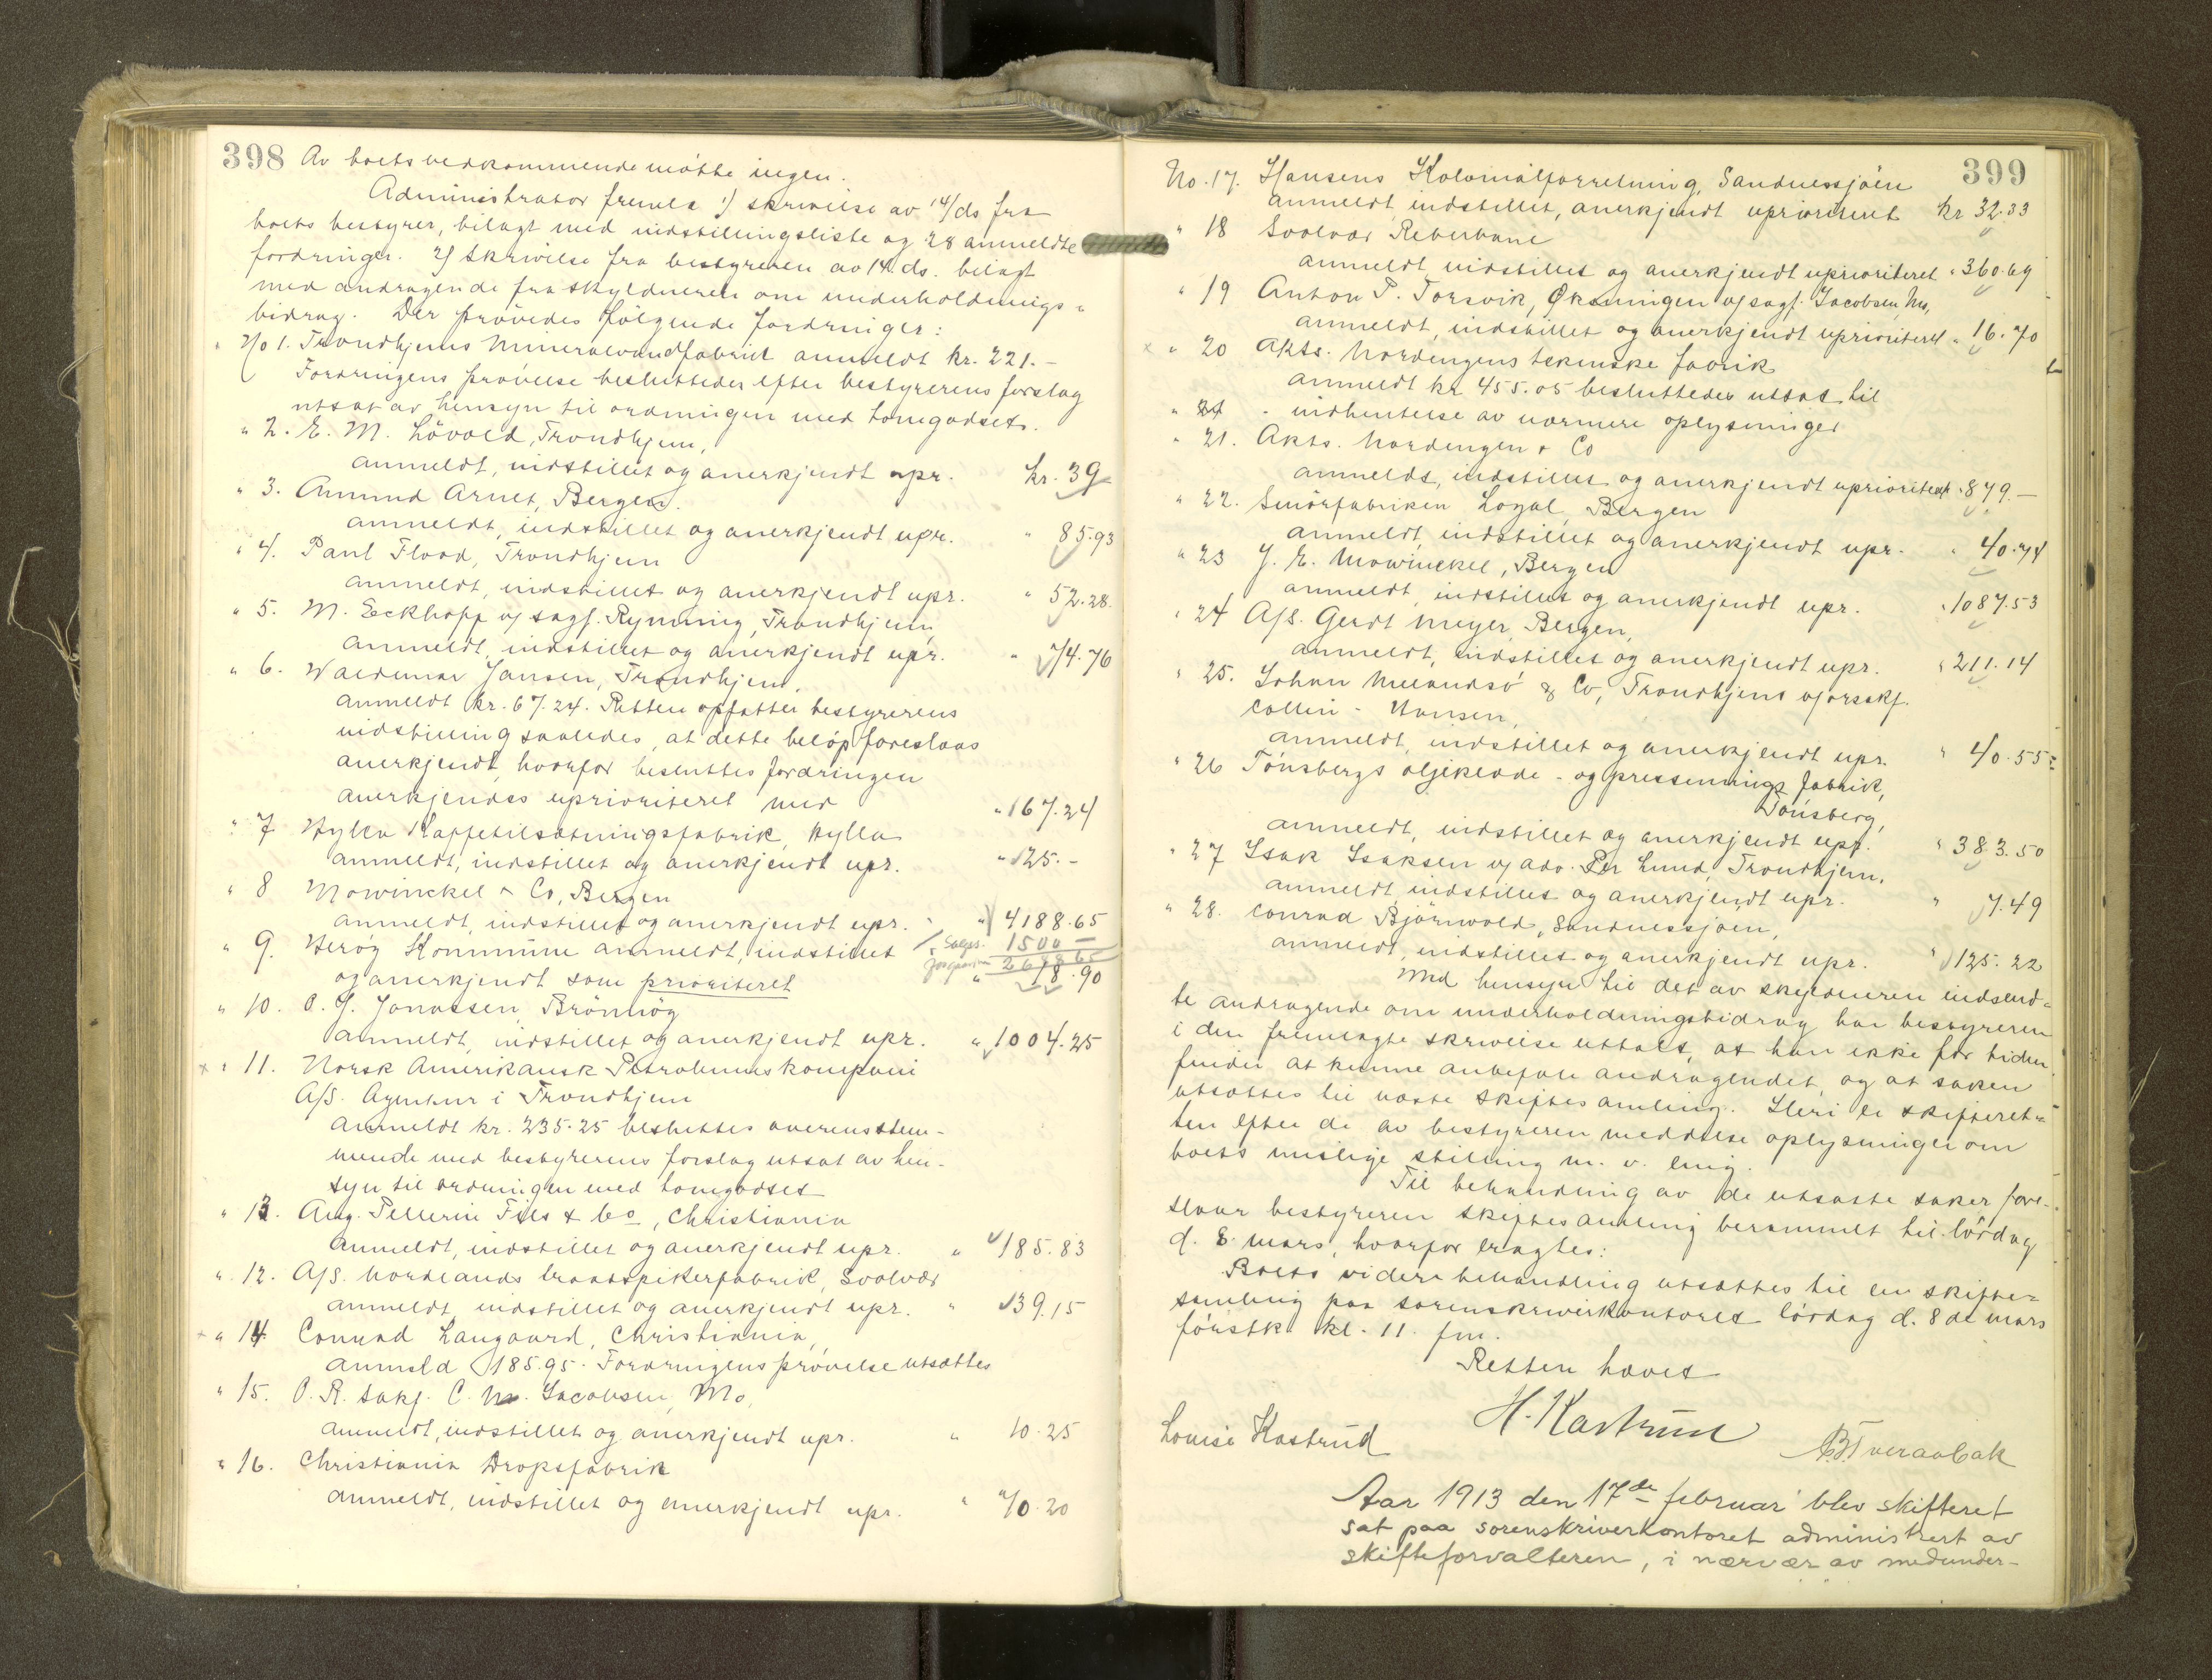 398
Av boets vedkommende møtte ingen.
Administrator fremla 1) skrivelse av 14/ds fra
boets bestyrer, bilagt med indstillingsliste og 28 anmeldte
fordringer. 2) Skrivelse fra bestyreren av 14. ds. bilagt
med andragende fra skyldneren om underholdnings-
bidrag. Der prøvedes følgende fordringer:
" No 1. Trondhjems Mineralvandfabrik anmeldt kr. 221.-
Fordringens prøvelse besluttedes efter bestyrerens forslag
utsat av hensyn til ordningen med tomgodset.
" 2. E. M. Løvold, Trondhjem,
anmeldt, indstillet og anerkjendt upr. kr. 39
" 3. Amund Arnet, Bergen.
anmeldt, indstillet og anerkjendt upr. " 85.93
" 4. Paul Flood, Trondhjem
anmeldt, indstillet og anerkjendt upr. " 52.28.
" 5. M. Eckhoff v/ sagf. Rynning, Trondhjem,
anmeldt, indstillet og anerkjendt upr. " 74.76
" 6. Waldemar Jansen, Trondhjem,
anmeldt kr. 67.24. Retten opfatter bestyrerens
indstilling saaledes, at dette beløp foreslaas
anerkjendt, hvorfor besluttes fordringen
anerkjendes uprioriteret med " 167.24
" 7 Hylla Kaffetilsætningsfabrik, Hylla
anmeldt, indstillet og anerkjendt upr. " 125.-
" 8 Mowinckel & Co, Bergen
anmeldt, indstillet og anerkjendt upr. " 4188.65
" 9. Herøy Kommune anmeldt, indstillet 1500 -
2688 65
og anerkjendt som prioriteret " 18.90
" 10. O. J. Jonassen, Brønnøy
anmeldt, indstillet og anerkjendt upr. " 1004.25
x " 11. Norsk Amerikansk Petroleumskompani
A/S. Agentur i Trondhjem
anmeldt kr. 235.25 besluttes overensstem-
mende med bestyrerens forslag utsat av hen-
syn til ordningen med tomgodset
" 13. Aug. Pellerin Fils & Co, Christiania
anmeldt, indstillet og anerkjendt upr. " 185.83
" 12. A/S. Nordlands traadspikerfabrik, Svolvær
anmeldt, indstillet og anerkjendt upr. " 39.15
x " 14 Conrad Langaard, Christiania,
anmeld 185.95. Fordringens prøvelse utsættes
" 15. O. R. sakf. C. M. Jacobsen, Mo,
anmeldt, indstillet og anerkjendt upr. " 10.25
" 16. Christiania Dropsfabrik
anmeldt, indstillet og anerkjendt upr. " 70.20
399
No. 17. Hansens Kolonialforretning, Sandnessjøen
anmeldt, indstillet, anerkjendt uprioriteret kr 32.33
" 18 Svolvær Reberbane
anmeldt, indstillet og anerkjendt uprioriteret " 360.69
" 19 Anton P. Torsvik, Øksningen v/ sagf. Jacobsen, Mo,
anmeldt, indstillet og anerkjendt uprioriteret " 16.70
x " 20 Akts. Nordengens tekniske fabrik
anmeldt kr 455.05 besluttedes utsat til
" 21 - indhentelse av nærmere oplysninger
" 21. Akts. Nordengen & Co
anmeldt, indstillet og anerkjendt uprioriteret " 879.-
" 22. Smørfabriken Loyal, Bergen
anmeldt, indstillet og anerkjendt upr. " 40.74
" 23 J. E. Mowinckel, Bergen
anmeldt, indstillet og anerkjendt upr. " 1087.53
" 24 A/S. Gerdt Meyer, Bergen,
anmeldt, indstillet og anerkjendt upr. " 211.14
" 25. Johan Melandsø & Co, Trondhjem v/orsakf.
Collin - Hansen,
anmeldt, indstillet og anerkjendt upr. " 40.55
" 26 Tønsbergs oljeklæde- og pressenningsfabrik,
Tønsberg,
anmeldt, indstillet og anerkjendt upr. " 383.50
" 27 Isak Isaksen v/ adv. Per Lund, Trondhjem,
anmeldt, indstillet og anerkjendt upr. " 7.49
" 28. Conrad Bjørnvold, Sandnessjøen,
anmeldt, indstillet og anerkjendt upr. " 125.22
Med hensyn til det av skyldneren indsend-
te andragende om underholdningsbidrag har bestyreren
i den fremlagte skrivelse uttalt, at han ikke for tiden
finder at kunne anbefale andragendet, og at saken
utsættes til næste skiftesamling. Heri er skifteret-
ten efter de av bestyreren meddelte oplysninger om
boets mislige stilling m. v. enig.
Til behandling av de utsatte saker fore-
slaar bestyreren skiftesamling berammet til lørdag
d. 8. mars, hvorfor eragtes:
Boets videre behandling utsættes til en skifte-
samling paa sorenskriverkontoret lørdag d. 8de mars
førstk. kl. 11 fm.
Retten hævet
H. Kastrud
Louise Kastrud
Tveraabak
Aar 1913 den 17de februar blev skifteret
sat paa sorenskriverkontoret administrert av
skifteforvalteren, i nærvær av medunder-